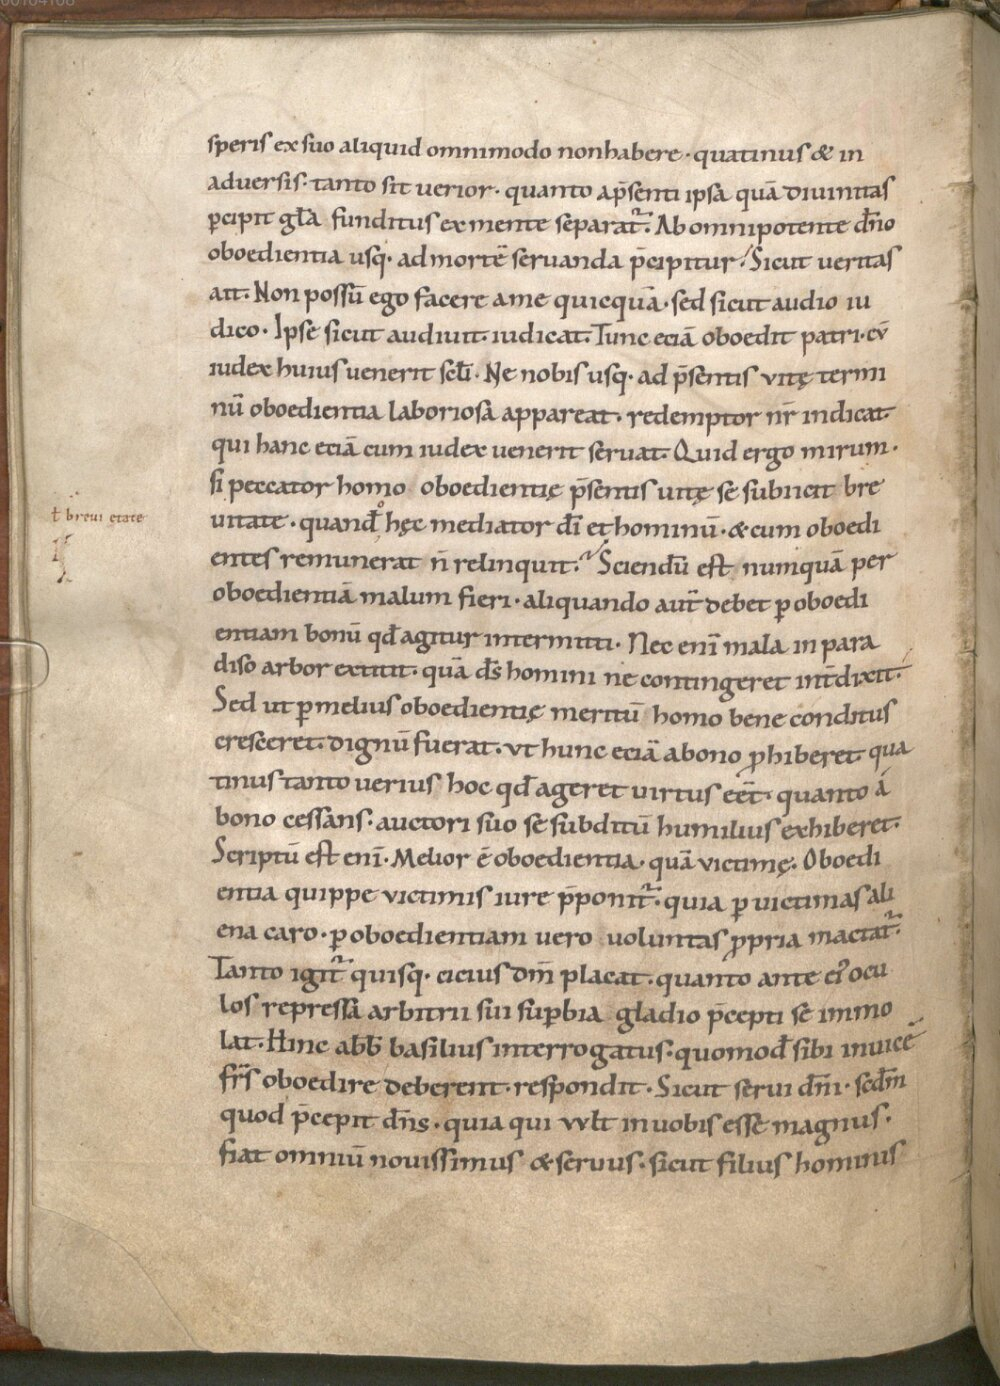 00104108
speris ex suo aliquid omnimodo non habere · quatinus & in
aduersis · tanto sit uerior · quanto a p̄senti ipsa quā diuinitus
p̱cipit gl̄a funditus ex mente separat᷑. Ab omnipotente dn̄o
oboedientia usq· ad mortē seruanda p̄cipitur. Sicut ueritas
ait. Non possū ego facere a me quicquā · sed sicut audio iu
dico · Ipse sicut audiuit · iudicat. Tunc eciā oboedit patri · cū
iudex huius uenerit sc̄li · Ne nobis usq· ad p̄sentis vitę termi
nū oboedientia laboriosa appareat · redemptor nr̄ indicat
qui hanc eciā cum iudex uenerit seruat. Quid ergo mirum ·
si peccator homo oboedientię p̄sentis uitę se subicit bre
uitate · quand̄o hęc mediator dī et hominū · & cum oboedi
entes remunerat n̄ relinquit. Sciendū est numquā per
oboedientiā malum fieri · aliquando aut̄ debet ꝑ oboedi
entiam bonū qd̄ agitur intermitti · Nec enī mala in para
diso arbor extitit · quā ds̄ homini ne contingeret int̄dixit.
Sed ut ꝑ melius oboedientię meritū homo bene conditus
cresceret · dignū fuerat · vt hunc eciā a bono ꝓhiberet · qua
tinus tanto uerius hoc qd̄ ageret uirtus eēt · quanto a
bono cessans · auctori suo se subditū humilius exhiberet.
Scriptū est enī · Melior ē oboedientia · quā victimę. Oboedi
entia quippe victimis iure p̄ponit᷑. quia ꝑ uictimas ali
ena caro · ꝑ oboedientiam uero uoluntas ꝓpria mactat᷑.
Tanto igit᷑ quisq· cicius dm̄ placat · quanto ante eiꝰ ocu
los repressa arbitrii sui suꝑbia gladio p̄cepti se immo
lat. Hinc abb̄ basilius interrogatus · quomod̄ sibi inuicē
frs̄ oboedire deberent · respondit · Sicut serui dn̄i · scd̄m
quod p̄cepit dn̄s · quia qui vvlt in uobis esse magnus ·
fiat omniū nouissimus & seruus · sicut filius hominis
ł breui ętate